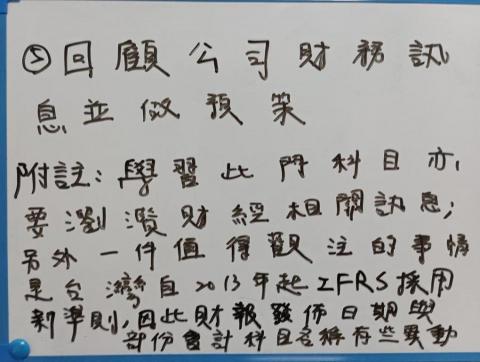 ⑤回顧公司財務訊
息並做預策
附註：學習此門科目亦,
要瀏灠財經相關訊息；
另外一件值得觀注的事情
是台灣自2013年起IFRS採用
新準則,因此財報發佈日期與
部份會計科目名稱有些異動